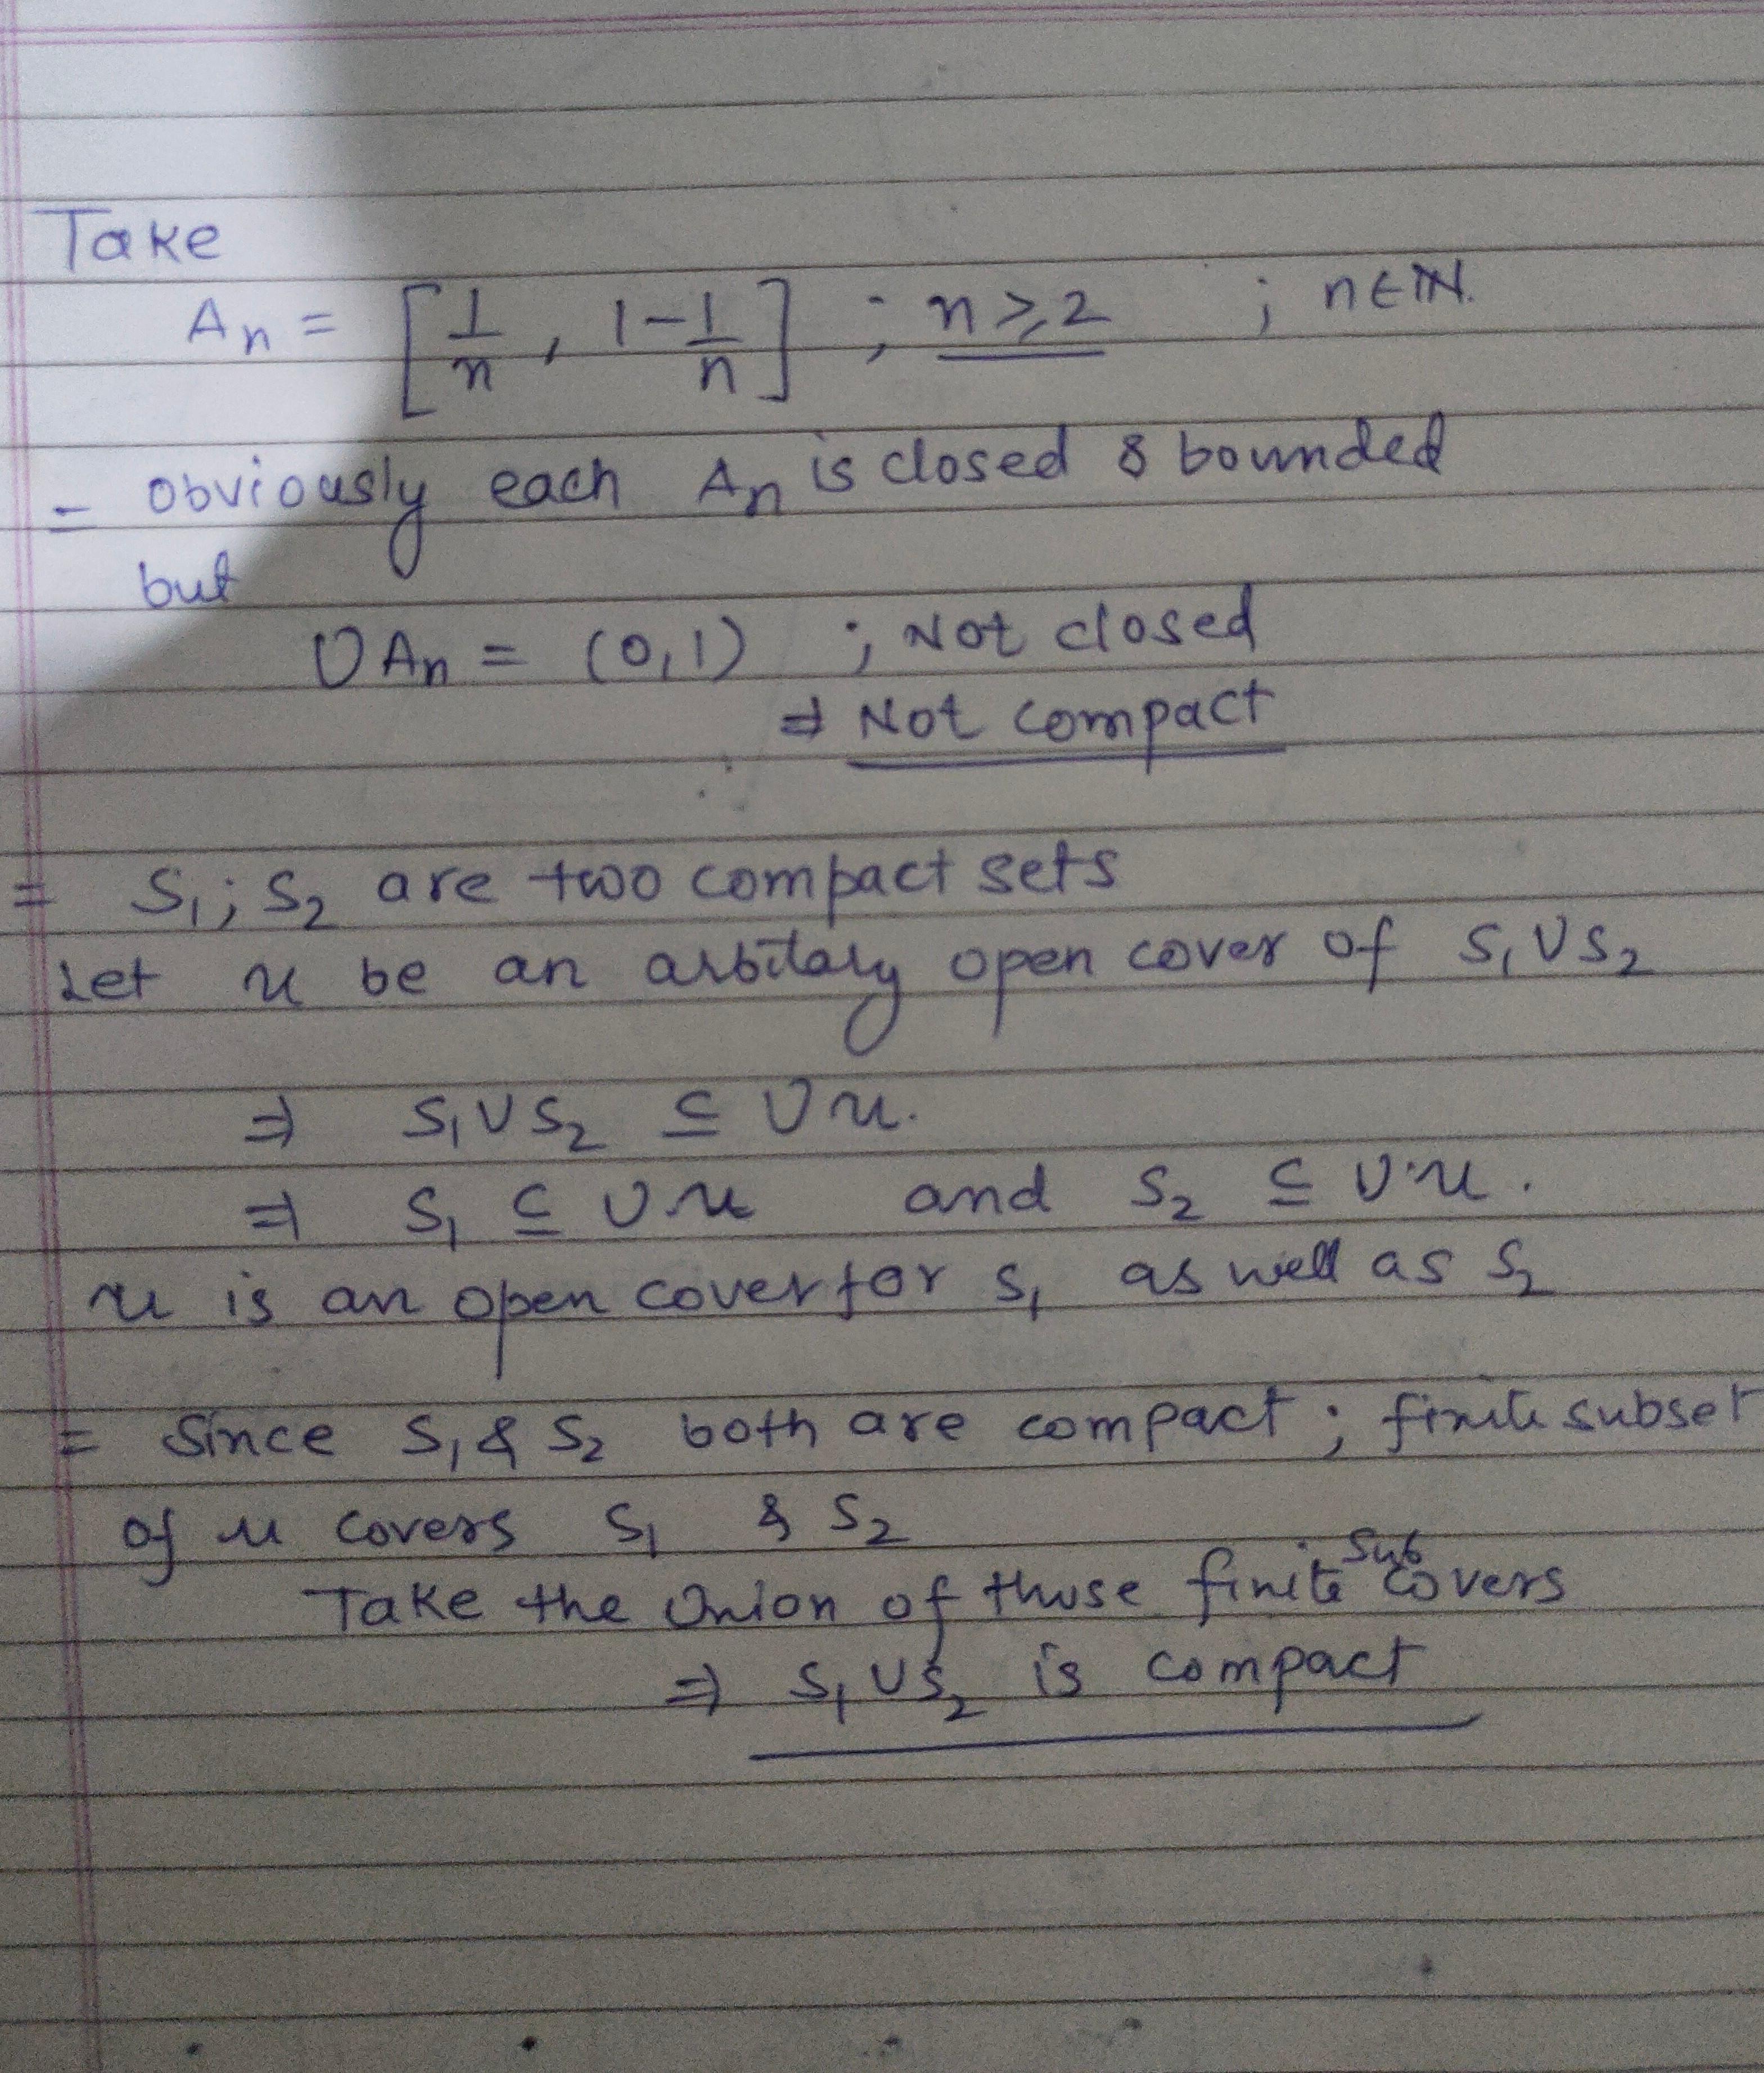 Take
An = [1/n , 1-1/n] ; n ≥ 2 ; n∈ℕ.
= obviously each An is closed & bounded
but
∪An = (0,1) ; Not closed
⇒ Not compact
= S₁; S₂ are two compact sets
Let u be an arbitary open cover of S₁∪S₂
⇒ S₁∪S₂ ⊆ ∪u.
⇒ S₁ ⊆ ∪u and S₂ ⊆ ∪u.
u is an open cover for S₁ as well as S₂
= Since S₁ & S₂ both are compact ; finite subset
of u covers S₁ & S₂
Take the Union of those finite subcovers
⇒ S₁∪S₂ is compact